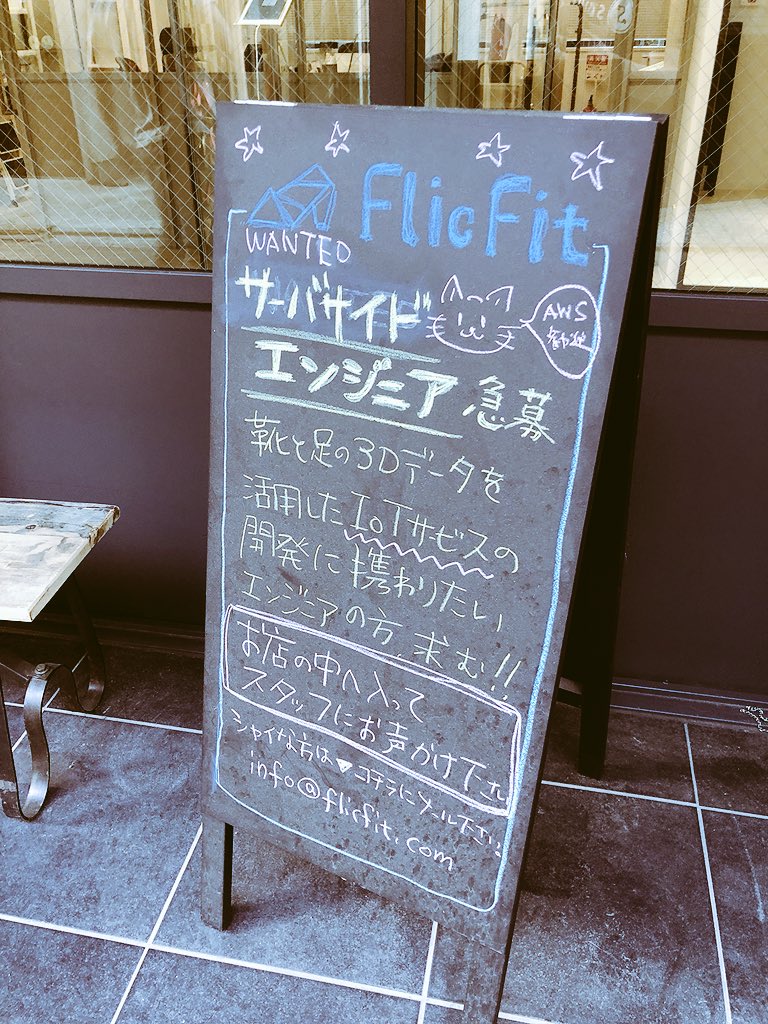 FlicFit
WANTED
サーバサイド
AWS
歓迎
エンジニア 急募
靴と足の3Dデータを
活用したIoTサービスの
開発に携わりたい
エンジニアの方、求む!!
お店の中へ入って
スタッフにお声かけ下さい
シャイな方は▼コチラにメール下さい。
info@flicfit.com